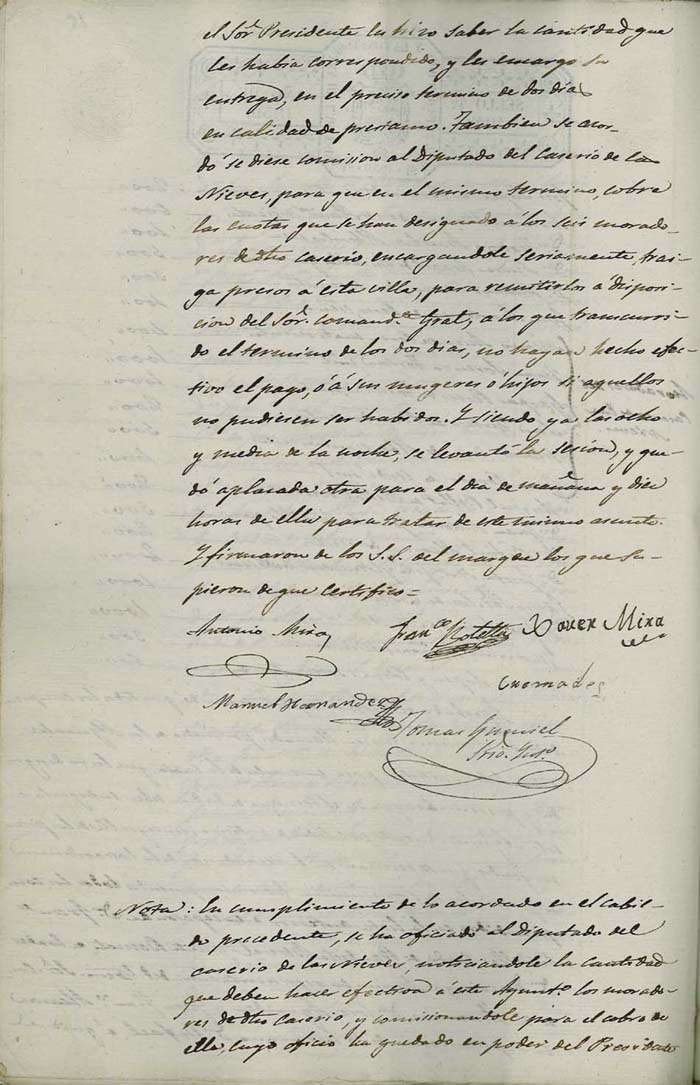 el Sor. Presidente les hizo saber la cantidad que
les habia correspondido, y les encargo su
entrega, en el preciso termino de dos dias
en calidad de prestamo. Tambien se acor-
dó se diese comision al Diputado del Caserio de las
Nieves, para que en el mismo termino, cobre
las cuotas que se han designado á los seis morado-
res de dho caserio, encargandole seriamente, trai-
ga presos á esta villa, para remitirlos á disposi-
cion del Sor. Comandte. Gral, á los que transcurri-
do el termino de los dos dias, no hayan hecho efec-
tivo el pago, ó á sus mugeres ó hijos si aquellos
no pudiesen ser habidos. Y siendo ya las ocho
y media de la noche, se levantó la sesion, y que-
dó aplasada otra para el dia de mañana y diez
horas de ella para tratar de este mismo asunto.
Y firmaron de los S.S. del margen los que su-
pieron de que certifico=
Antonio Mira Franco Rotella Xaver Mira
Manuel Hernandez
Tomas Gumiel
Srio.
Nota: En cumplimiento de lo acordado en el cabil-
do precedente, se ha oficiado al Diputado del
caserio de las Nieves, noticiandole la cantidad
que deben hacer efectiva á este Ayunto. los morado-
res de dho caserio, y comisionandole para el cobro de
ella, cuyo oficio ha quedado en poder del Presidente